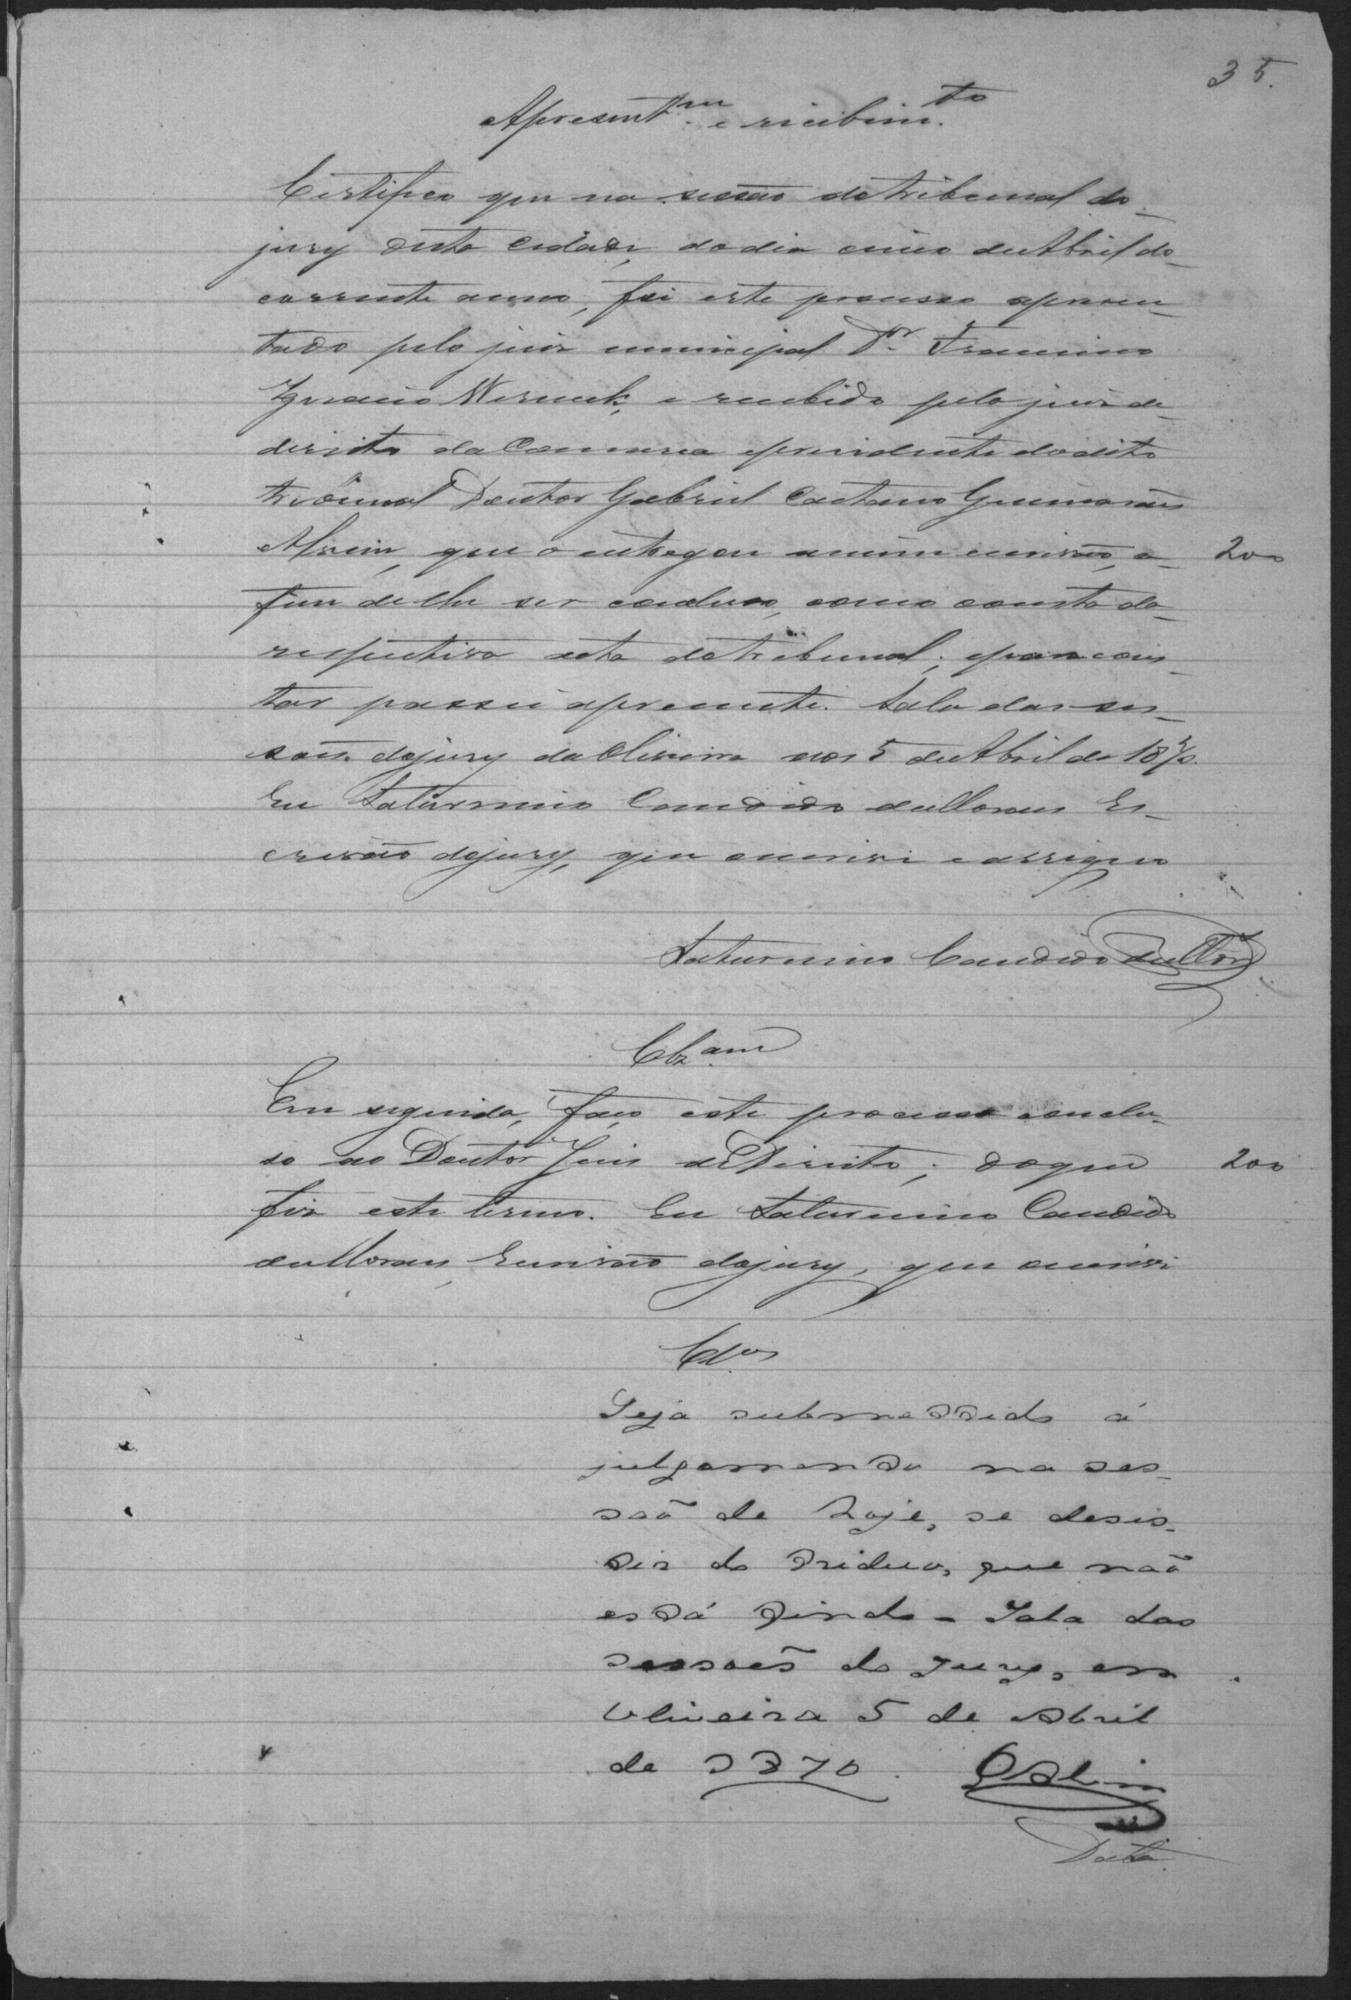 35.
Apresent.am e recebim.to
Certifico que na sessão do tribunal do
jury desta cidade, do dia cinco de Abril do
corrente anno, foi este processo apresen-
tado pelo juiz municipal Dr.
Ignacio Werneck, e recebido pelo juiz de
direito da Comarca e presidente do dito
tribunal Doutor Gabriel Caetano Guimarães
Alvim, que o entregou a mim escrivão, a 200
fim de lhe ser concluso, como consta da
respectiva acta do tribunal; e para cons-
tar passei a presente. Sala das ses-
sões do jury da Oliveira aos 5 de Abril de 1870.
Eu Saturnino Candido de Moraes Es-
crivão do jury, que escrevi e assigno
Saturnino Candido de Moraes
Clz.am
Em seguida, faço este processo conclu-
so ao Doutor Juiz de Direito; do que 200
fiz este termo. Eu Saturnino Candido
de Moraes, Escrivão do jury, que escrevi
Cl.os
Seja submettido á
julgamento na ses-
saõ de hoje, se desis-
tir do triduo, que naõ
está findo - Sala das
sessoẽs do Jury, em
Oliveira 5 de Abril
de 1870. GAlvim
Data